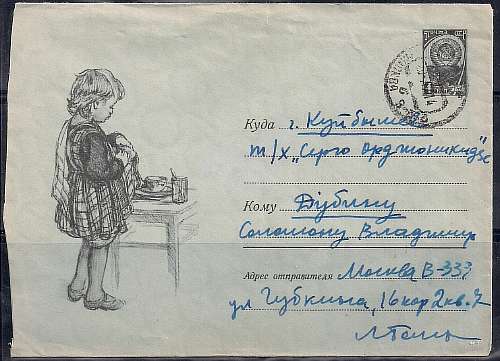 Куда г. Куйбышев
т/х "Серго Орджоникидзе"
Кому Дублину
Соломону Владимир
Адрес отправителя Москва В-333
ул Губкина, 16 кор 2 кв. 7